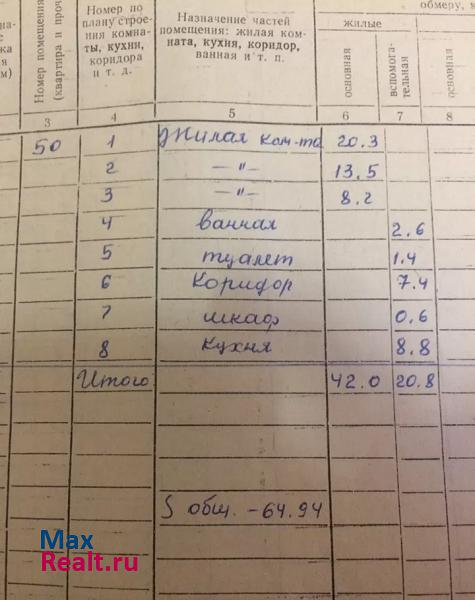 обмеру, м
Номер помещения (квартира и проч
Номер по плану строения комнаты, кухни, коридора и т. д.
Назначение частей помещения: жилая комната, кухня, коридор, ванная и т. п.
жилые
основная
вспомогательная
основная
3 4 5 6 7 8
50 1 Жилая ком-та 20.3
2 — " — 13,5
3 — " — 8.2
4 ванная 2.6
5 туалет 1.4
6 Коридор 7.4
7 шкаф 0.6
8 Кухня 8.8
Итого 42.0 20.8
S общ. - 64.94
Max
Realt.ru